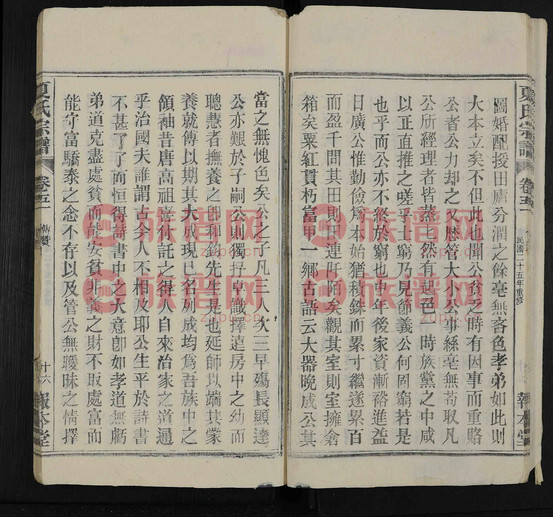 圖婚配授田廣分潤之餘毫無吝色孝弟如此則
大本立矣不但此也聞公貧之時有因事而重賂
公者公力却之又歷管大小公事絲毫無苟取凡
公所經理者皆蒸蒸然有起色一時族黨之中咸
以正直推之嗟乎士窮乃見節義公何因窮若是
也乎然而公亦不終於窮也中年後家資漸裕進益
日廣公惟勤儉 本始猶積銖而累寸繼遂累百
而盈千問其田則連阡陌矣觀其室則室擁倉
箱矣粟紅貫朽富甲一鄉古語云大器晚成公其
當之無愧色矣公之子凡三人次三早殤長顯達
公亦艱於子嗣公則獨具卓識擇遠房中之幼而
聰慧者撫養之即利銘先生是也延師以端其蒙
養就傅以期其大成現已名列成均為吾族中之
領袖昔唐高祖 付託之得人自來治家之道通
乎治國夫誰謂古今人不相及耶公生平於詩書
不甚了了而恒得詩書中之大意即如孝道無虧
弟道克盡處貧而能安貧非義之財不取處富而
能守富驕泰之念不存以及管公無曖昧之情擇
夏氏宗譜
卷五一
十六
報本堂
夏氏宗譜
卷五一
民國二十五年重修
報本堂